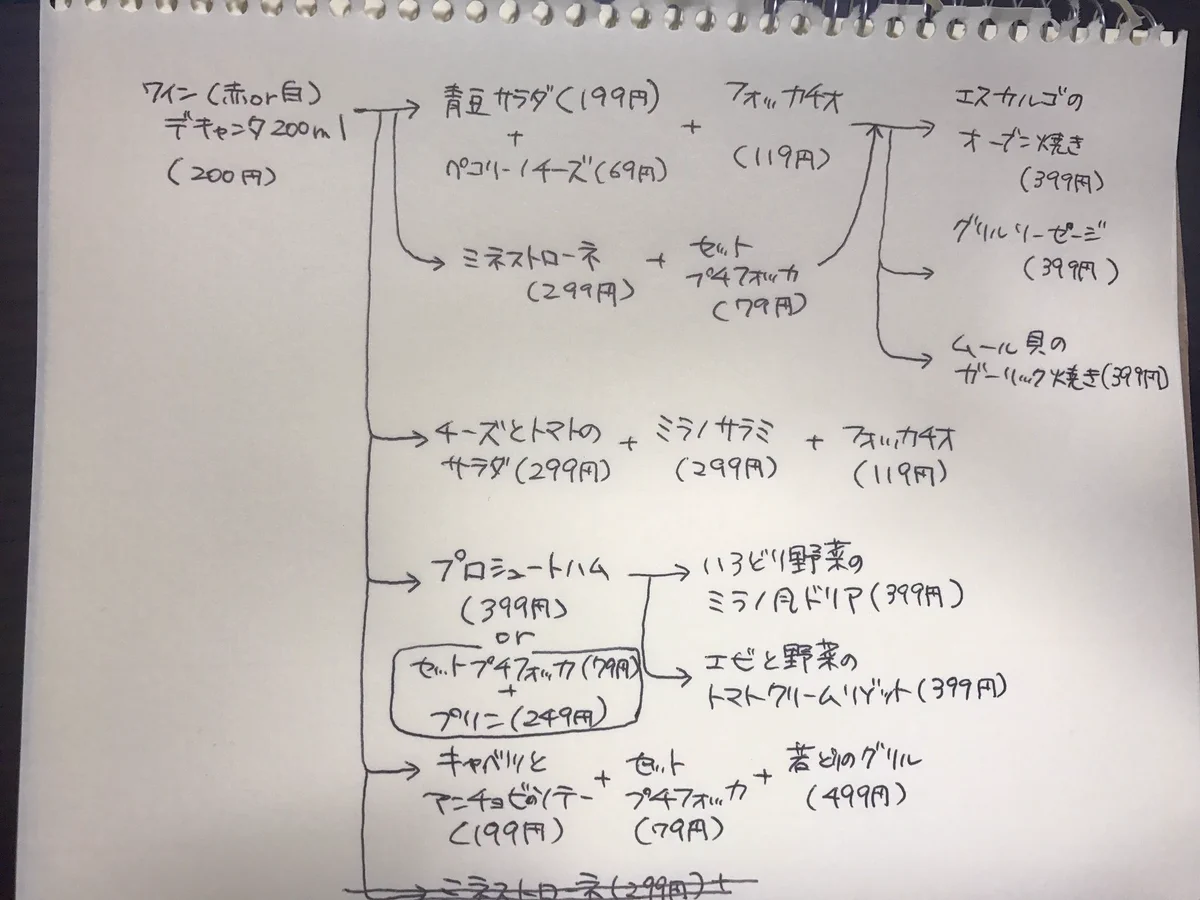 ワイン(赤or白)
デキャンタ200ml
(200円)
青豆サラダ(199円)
+
ペコリーノチーズ(69円)
+
フォッカチオ
(119円)
エスカルゴの
オーブン焼き
(399円)
ミネストローネ
(299円)
+
セット
プチフォッカ
(79円)
グリルソーセージ
(399円)
ムール貝の
ガーリック焼き(399円)
チーズとトマトの
サラダ(299円)
+
ミラノサラミ
(299円)
+
フォッカチオ
(119円)
プロシュートハム
(399円)
or
セットプチフォッカ(79円)
+
プリン(249円)
いろどり野菜の
ミラノ風ドリア(399円)
エビと野菜の
トマトクリームリゾット(399円)
キャベツと
アンチョビのソテー
(199円)
+
セット
プチフォッカ
(79円)
+
若どりのグリル
(499円)
ミネストローネ(299円)+